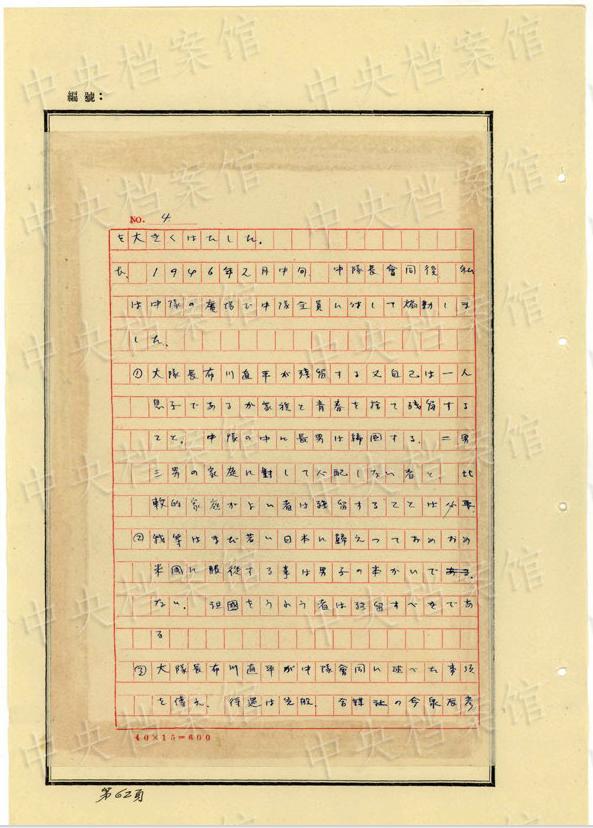 編號：
NO. 4
を大きくはたした。
た、1946年2月中旬、中隊長會同後、私
は中隊の廣場で中隊全員にはして煽動しま
した。
①大隊長布川直平が残留する又自己は一人
息子であるが家族と青春を捨て残留する
こと。中隊の中に長男は帰国する。二男
三男の家庭に對して心配しない者と、比
較的家庭がよい者は残留することは必要
②我等はまだ若い日本に歸えっておめおめ
米国に服従する事は男子の本かいで
ない。祖國をうれう者は残留すべきであ
る
③大隊長布川直平が中隊會同に述べた事項
を傳え、待遇は先般、合謀社の今泉
40×15=600
第62頁
中央档案馆